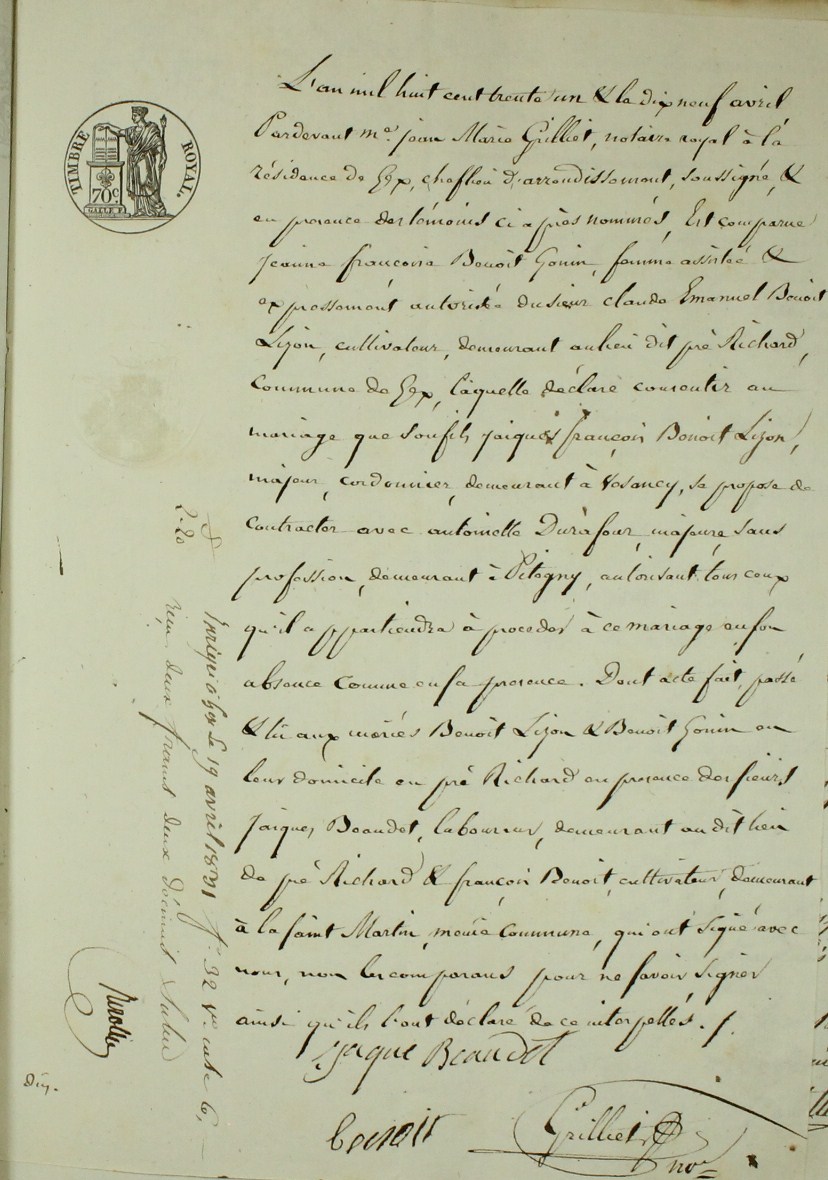 TIMBRE ROYAL.
70 c
L'an mil huit cent trente un & le dix neuf avril
Pardevant me. jean Marie Grilliet, notaire royal à la
résidence de Gex, cheflieu d'arrondissement, soussigné, &
en presence des témoins ci après nommés, Est comparue
jeanne françoise Benoit Gonin, femme assistée &
expressement autorisée du sieur claude Emanuel Benoit
Lizon, cultivateur, demeurant au lieu dit pré Richard,
Commune de Gex, laquelle déclare consentir au
mariage que son fils jaiques françois Benoit Lizon,
majeur, cordonnier, demeurant à Vesancy, se propose de
Contracter avec antoinette Durafour, majeure, sans
profession, demeurant à Pitegny, autorisant tous ceux
qu'il appartiendra à proceder à ce mariage en son
absence Comme en sa presence. Dont acte fait, passé
& lû aux mariés Benoit Lizon & Benoit Gonin en
leur domicile en pré Richard en presence des sieurs
jaiques Beaudet, laboureur, demeurant au dit lieu
de pré Richard & françois Benoit, cultivateur, demeurant
à la faint Martin, même Commune, qui ont signé avec
nous, non les comparans pour ne savoir signer
ainsi qu'ils l'ont déclaré de ce interpellés. /.
Jaque Beaudet
Benoit
Grilliet
nore
2.20
Enregistré à Gex le 19 avril 1831 fo. 32 vo. case 6,
reçu deux francs deux décimes